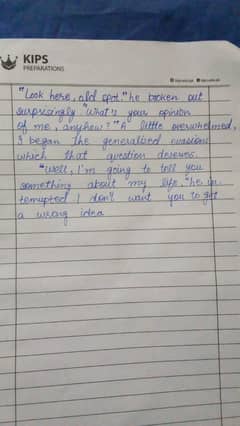 KIPS
PREPARATIONS
"Look here, old spot." he broken out
surprisingly "What's your opinion
of me, anyhow?" A little overwhelmed,
I began the generalized evasions
which that question deserves.
"Well, I'm going to tell you
something about my life," he in
terrupted I don't want you to get
a wrong idea